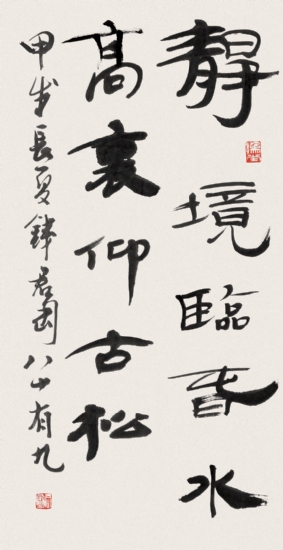 靜境臨春水
高裏仰古松
甲戌長夏錢君匋八十有九